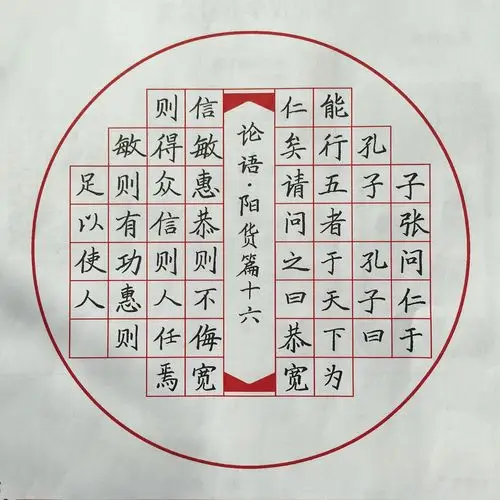 子张问仁于
孔子 孔子曰
能行五者于天下为
仁矣请问之曰恭宽
论语·阳货篇十六
信敏惠恭则不侮宽
则得众信则人任焉
敏则有功惠则
足以使人